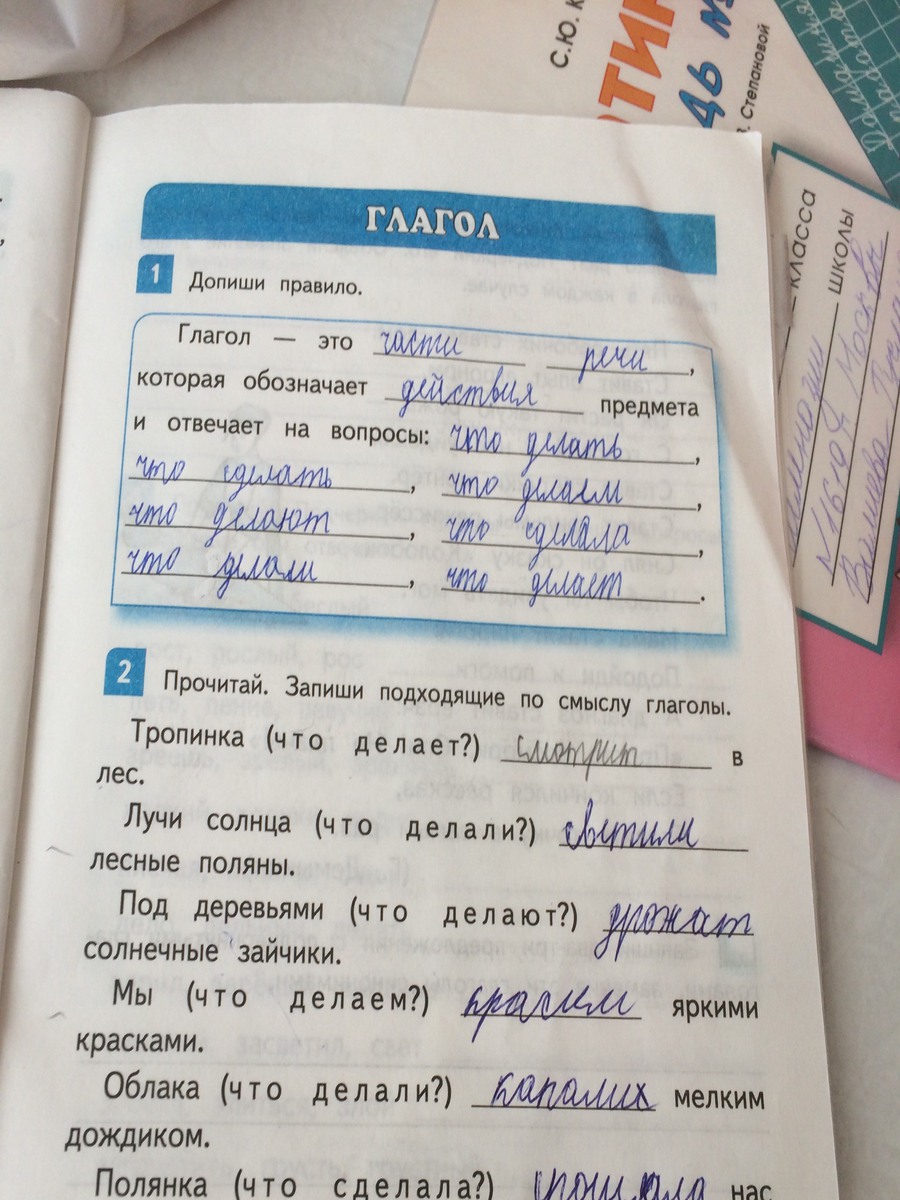 С.Ю. К
ОТИ
ДЬ №
Степановой
класса
школы
Москвы
№1619
ГЛАГОЛ
1 Допиши правило.
Глагол — это части речи,
которая обозначает действия предмета
и отвечает на вопросы: что делать,
что сделать, что делаем,
что делают, что сделала,
что делали, что делает.
2 Прочитай. Запиши подходящие по смыслу глаголы.
Тропинка (что делает?) смотрит в
лес.
Лучи солнца (что делали?) светили
лесные поляны.
Под деревьями (что делают?) дрожат
солнечные зайчики.
Мы (что делаем?) красим яркими
красками.
Облака (что делали?) капалих мелким
дождиком.
Полянка (что сделала?) нас